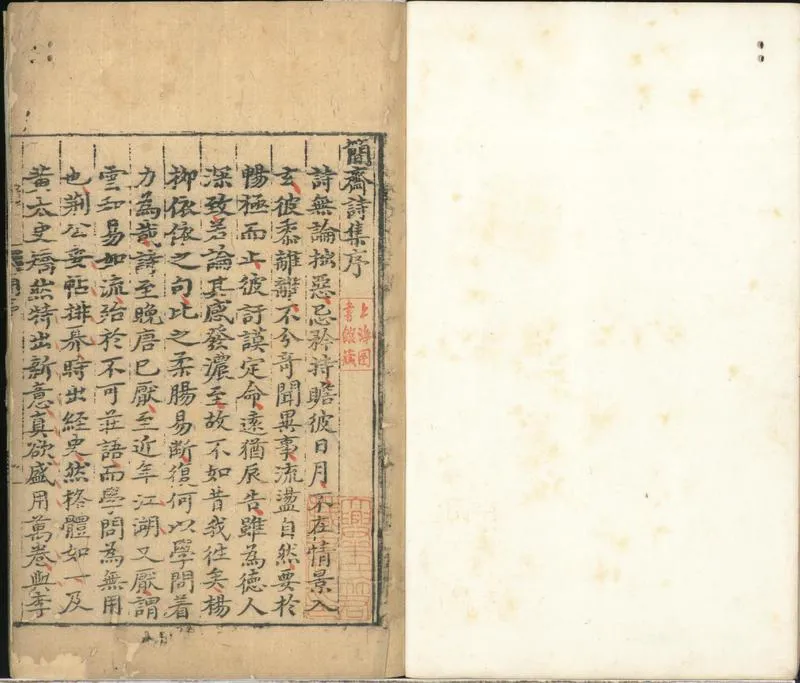 簡齋詩集序
詩無論拙惡忌矜持瞻彼日月不在情景入
玄彼黍離離不分竒聞異事流盪自然要於
暢極而止彼訏謨定命遠猶辰告雖為德人
深致若論其感發濃至故不如昔我徃矣楊
柳依依之句比之柔腸易斷復何以學問着
力為哉詩至晚唐已厭至近年江湖又厭謂
雲和易如流殆於不可莊語而學問為無用
也荆公妥帖排奡時出經史然格體如一及
黃太史矯然特出新意真欲盛用萬卷與李
上海圖
書館藏